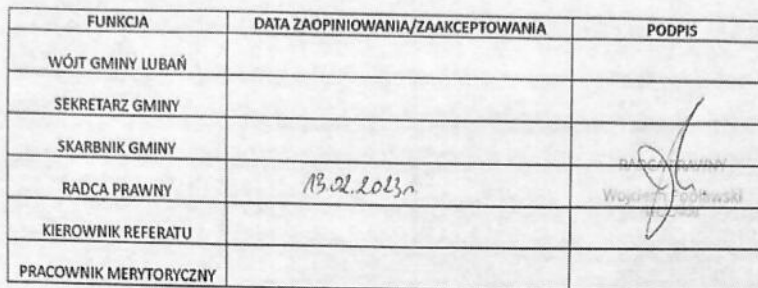 FUNKCJA DATA ZAOPINIOWANIA/ZAAKCEPTOWANIA PODPIS
WÓJT GMINY LUBAŃ
SEKRETARZ GMINY
SKARBNIK GMINY
RADCA PRAWNY
RADCA PRAWNY 13.02.2023r
Wojciech
KIEROWNIK REFERATU
PRACOWNIK MERYTORYCZNY